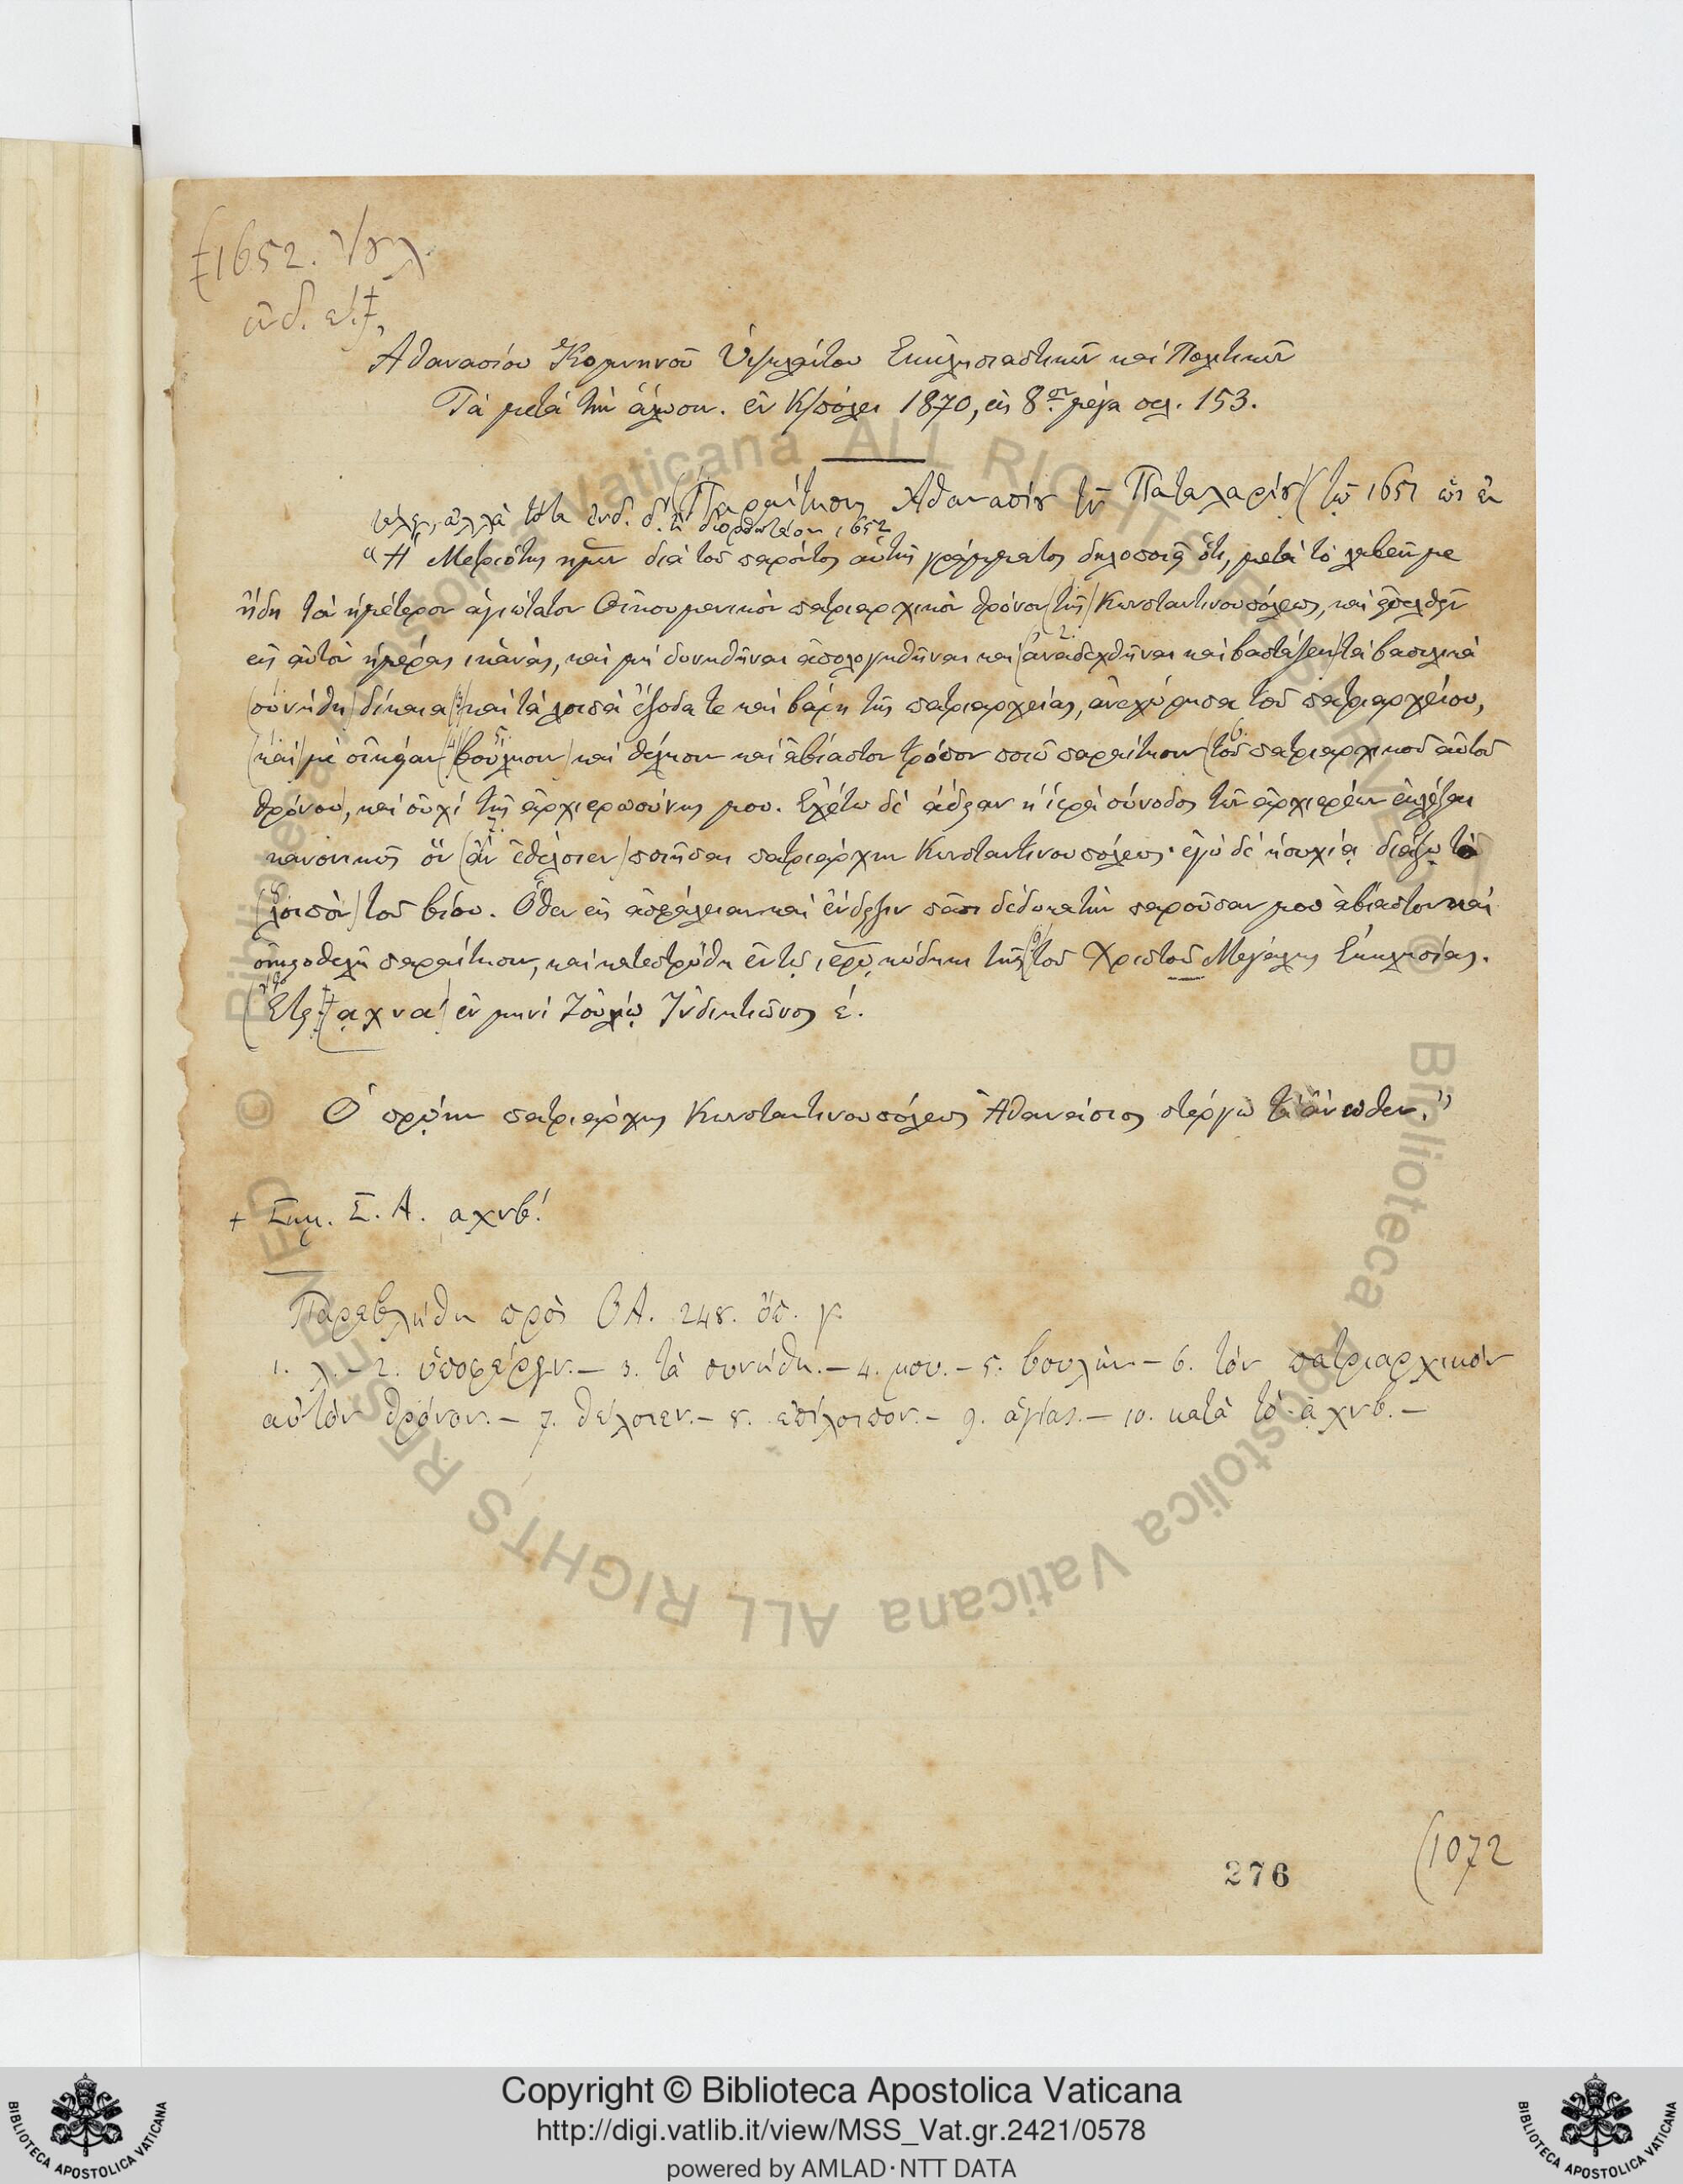 1652. Ἰουλ.
ἰνδ. ε΄.
Ἀθανασίου Κομνηνοῦ Ὑψηλάντου Ἐκκλησιαστικῶν καὶ Πολιτικῶν
Τὰ μετὰ τὴν ἅλωσιν. ἐν Κ/πόλει 1870, εἰς 8ον μέγα σελ. 153.
Παραίτησις Ἀθανασίου τοῦ Παταλαρίου (τῷ 1651 ὡς ἐν
τέλει, ἀλλὰ τότε ἰνδ. δ΄. ἢ διορθωτέον 1652
"Ἡ Μετριότης ἡμῶν διὰ τοῦ παρόντος αὐτῆς γράμματος δηλοποιεῖ ὅτι, μετὰ τὸ λαβεῖν με
ἤδη τὸν ἡμέτερον ἁγιώτατον Οἰκουμενικὸν πατριαρχικὸν θρόνον (τῆς) Κωνσταντινουπόλεως, καὶ ἐπελθεῖν
εἰς αὐτὸν ἡμέρας ἱκανάς, καὶ μὴ δυνηθῆναι ἀπολογηθῆναι καὶ (ἀναδεχθῆναι καὶ βαστάσαι) τὰ βασιλικὰ
(συνήθη) δίκαια (3) καὶ τὰ λοιπὰ ἔξοδά τε καὶ βάρη τῆς πατριαρχείας, ἀνεχώρησα τοῦ πατριαρχείου,
(καὶ) μὲ οἰκείαν (4) (βούλησιν) καὶ θέλησιν καὶ ἀβίαστον τρόπον ποιῶ παραίτησιν (τοῦ πατριαρχικοῦ αὐτοῦ
θρόνου), καὶ οὐχὶ τῆς ἀρχιερωσύνης μου. Ἐχέτω δὲ ἄδειαν ἡ ἱερὰ σύνοδος τῶν ἀρχιερέων ἐκλέξαι
κανονικῶς ὃν (ἂν ἐθέλοιεν) ποιῆσαι πατριάρχην Κωνσταντινουπόλεως· ἐγὼ δὲ ἡσυχίᾳ διάξω τὸ
(λοιπὸν) τοῦ βίου. Ὅθεν εἰς ἀσφάλειαν καὶ ἔνδειξιν πᾶσι δέδωκα τὴν παροῦσάν μου ἀβίαστον καὶ
οἰκειοθελῆ παραίτησιν, καὶ κατεστρώθη ἐν τῷ ἱερῷ κώδηκι τῆς (9) τοῦ Χριστοῦ Μεγάλης Ἐκκλησίας.
(Ἔτει αχνα΄) ἐν μηνὶ Ἰουλίῳ Ἰνδικτιῶνος ε΄.
Ὁ πρῴην πατριάρχης Κωνσταντινουπόλεως Ἀθανάσιος στέργω τὰ ἄνωθεν."
+ Σημ. Σ. Α. αχνβ΄.
Παρεβλήθη πρὸς ΘΑ. 248. ὅπ. γ.
1. λ. – 2. ὑποφέρειν. – 3. τὰ συνήθη. – 4. μου. – 5. βουλὴν – 6. τὸν πατριαρχικὸν
αὐτὸν θρόνον. – 7. θέλοιεν. – 8. ἐπίλοιπον. – 9. ἁγίας. – 10. κατὰ τὸ αχνβ. –
276
(1072
Copyright © Biblioteca Apostolica Vaticana
http://digi.vatlib.it/view/MSS_Vat.gr.2421/0578
powered by AMLAD·NTT DATA